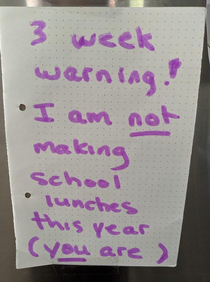 3 week
warning!
I am not
making
school
lunches
this year
(you are)